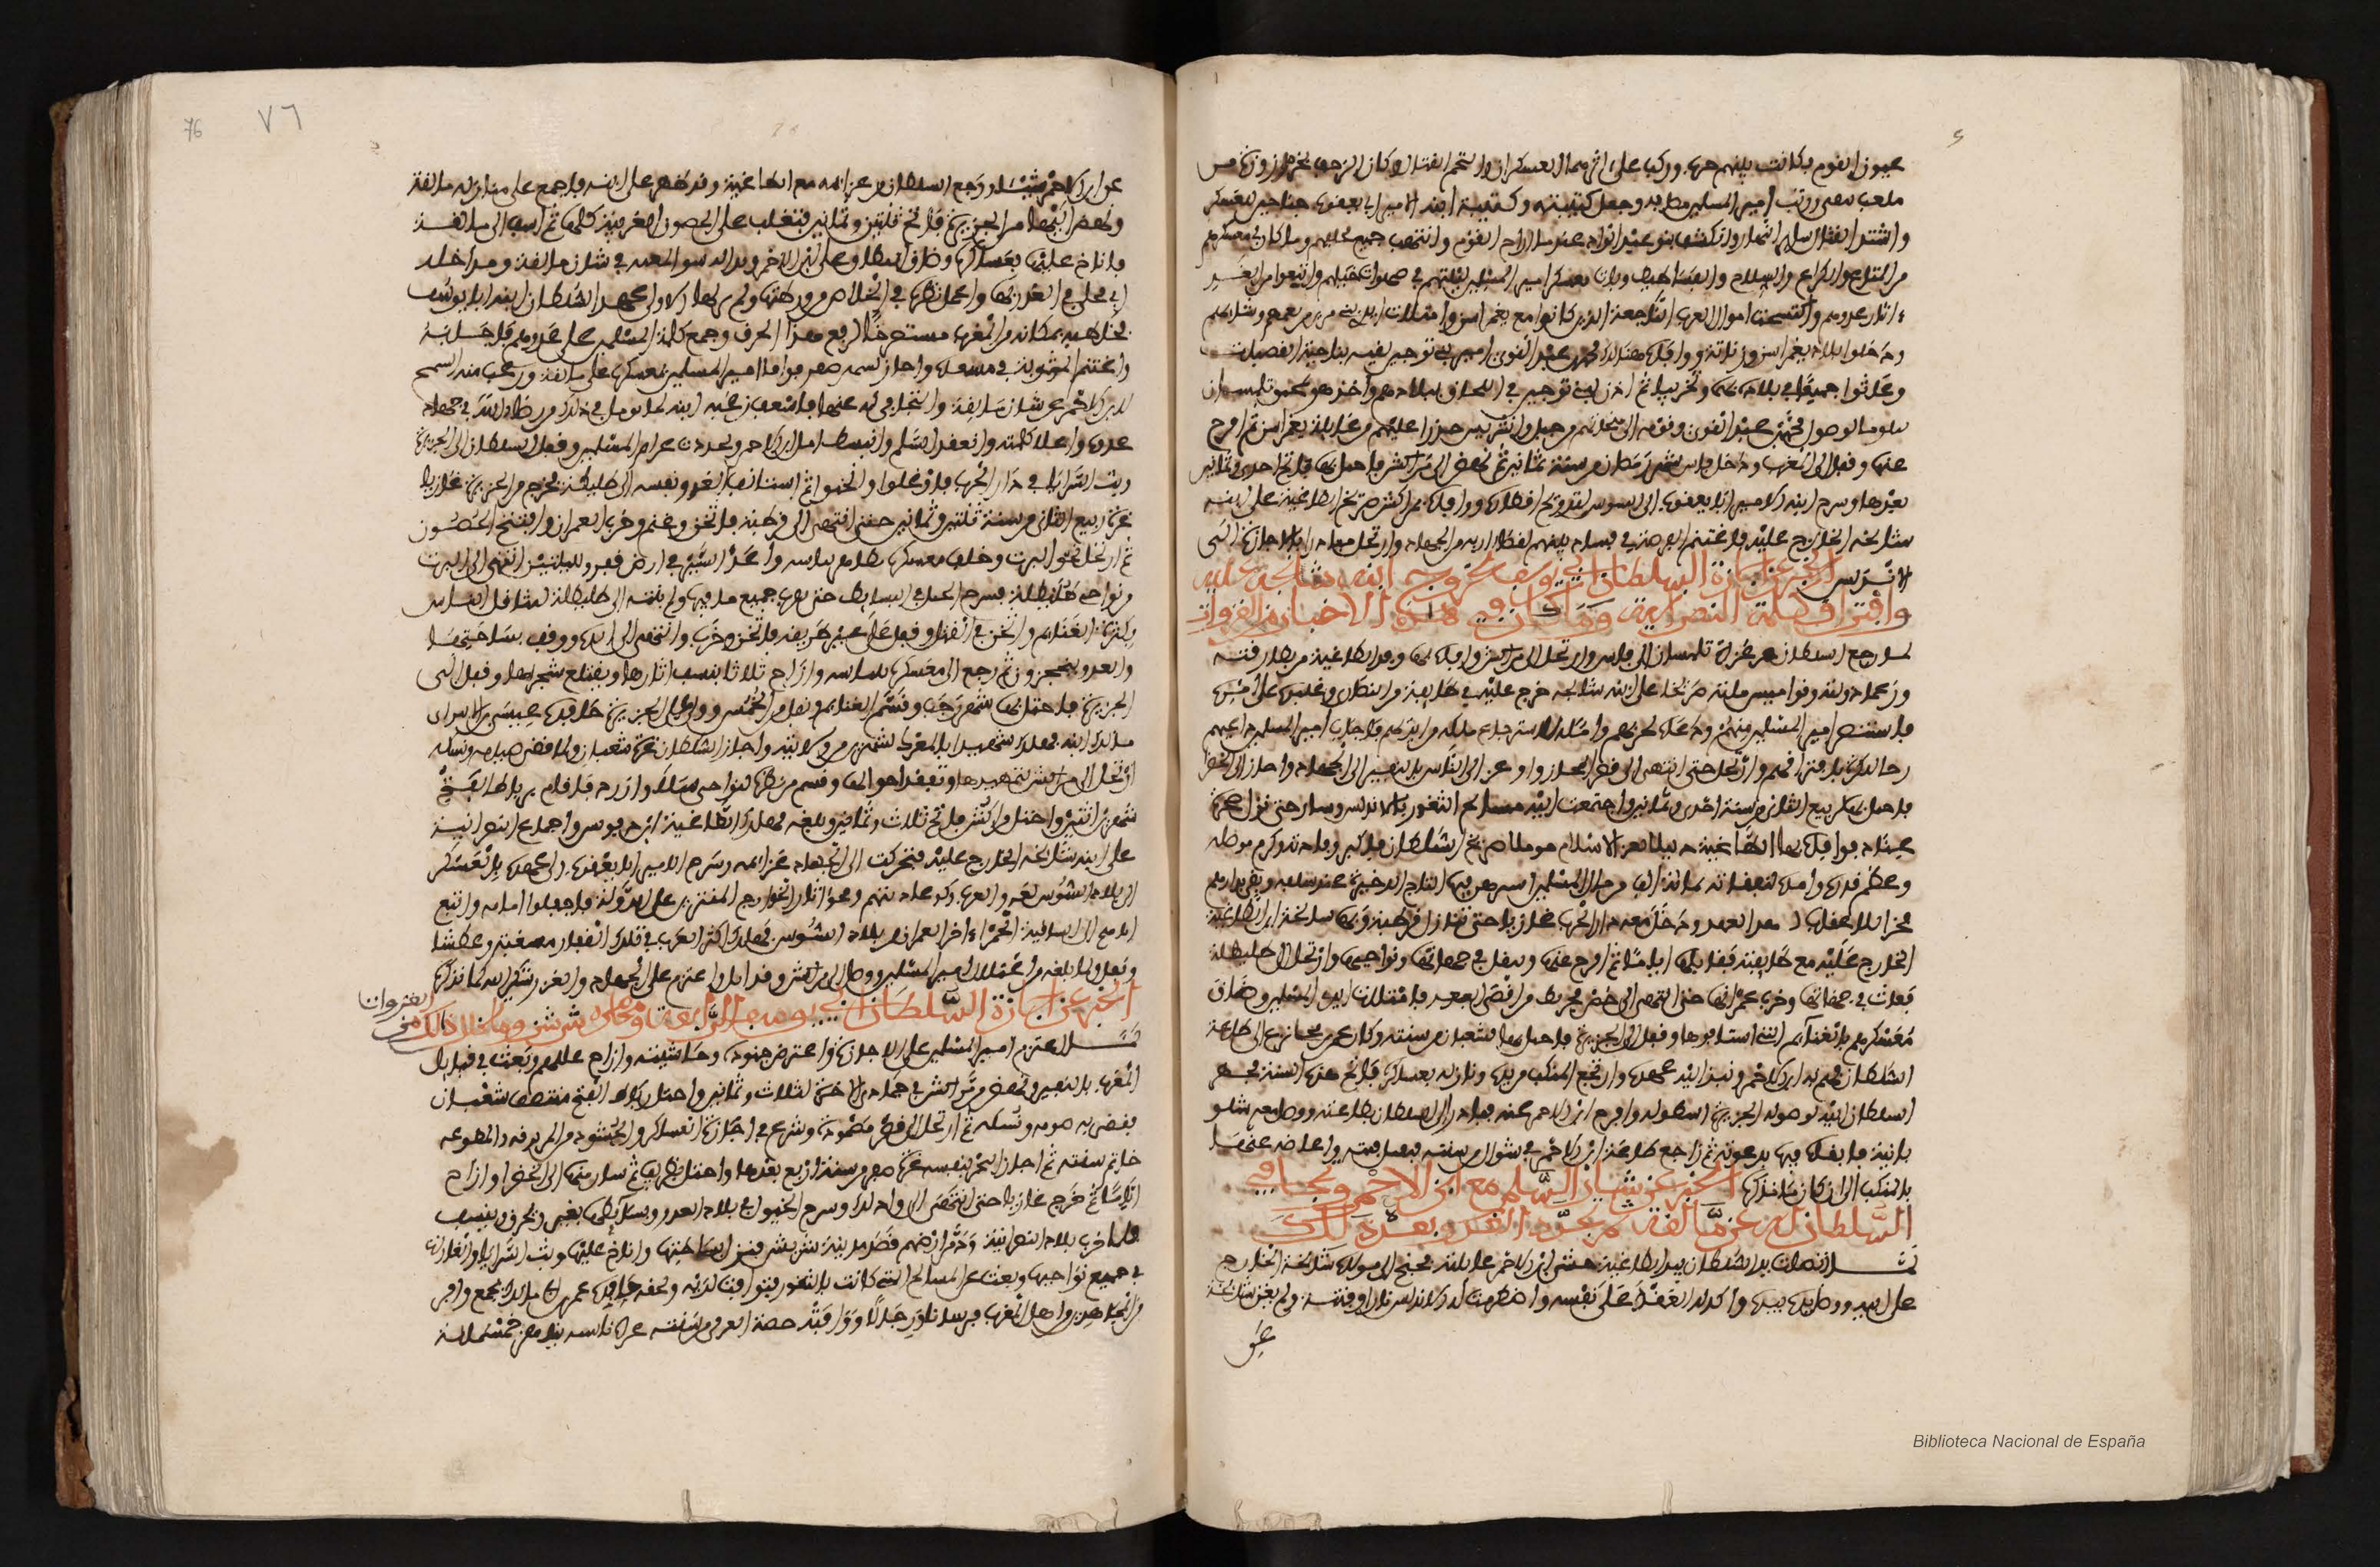 عيون القوم فكانت بينهم حرب وركب على اثرهما العسكران والتحم القتال وكان الزحف بخرزوزة من
ملعب تيفني ورتب امير المسلمين مصافه وجعل كتيبته وكتيبة ابنه الامير ابي يعقوب جناحين للعسكر
واشتد القتال سائر النهار وانكشف بنو عبد الواد عندما اراح القوم وانتهب جميع مخلفهم وما كان في معسكرهم
من المتاع والكراع والسلاح والفساطيط وبات معسكر امير المسلمين ليلتهم في صهوات خيلهم واتبعوا من الغد
اثار عدوهم واكتسحت اموال العرب الناجعة الذين كانوا مع يغمراسن وامتلات ايدي بني مرين من نعمهم وشائهم
ودخلوا بلاد يغمراسن وزناتة ووافاه هنالك محمد بن عبد القوي امير بني توجين لقيه بناحية القصبات
وعاثوا جميعا في بلاده نهبا وتخريبا ثم اذن لبني توجين في اللحاق ببلادهم واخذ هو بمخنق تلمسان
متلوما لوصول محمد بن عبد القوي وقومه الى منجاتهم من جبل وانشريس حذرا عليهم من غائلة يغمراسن ثم افرج
عنها وقفل الى المغرب ودخل فاس شهر رمضان من سنة ثمانين ثم نهض الى مراكش فاحتل بها فاتح احدى وثمانين
بعدها وسرح ابنه الامير ابا يعقوب الى السوس لتدويخ اقطاره ووافاه بمراكش صريخ الطاغية على ابنه
شانجة الخارج عليه فاغتنم الفرصة في فساد بينهم لقضاء اربه من الجهاد وارتحل مبادرا بالاجازة الى
الاندلس الخبر عن اجازة السلطان ابي يوسف بخروج ابنه شانجة عليه
وافتراق كلمة النصرانية وما كان في هذه الاخبار من الغزوات
لما رجع السلطان من غزاة تلمسان الى فاس وارتحل الى مراكش وافاه بها وفد الطاغية من بطارقته
وزعماء دولته وقواميس ملته صريخا على ابنه شانجه خرج عليه في طائفة من النصارى وغلبوه على امره
فاستنصر امير المسلمين منهم ودعاه لحربهم وامله لاسترجاع ملكه من ايديهم فاجاب امير المسلمين داعيه
رجاء للكرة بافتراقهم وارتحل حتى انتهى الى قصر المجاز واوعز الى الناس بالنفير الى الجهاد واجاز الى الخضراء
فاحتل بها لربيع الثاني من سنة احدى وثمانين واجتمعت اليه مسالح الثغور بالاندلس وسار حتى نزل صخرة
عباد فوافاه بها الطاغية ذليلا لعز الاسلام مؤملا صريخ السلطان فاكبر وفادته وكرم موصله
وعظم قدره وامده لنفقاته بمائة الف من مال المسلمين استرهن فيها التاج الذخيرة عند سلفه وبقي بدارهم
فخرا للاعقاب لهذا العهد ودخل معه دار الحرب غازيا حتى نازل قرطبة وبها شانجة ابن الطاغية
الخارج عليه مع طائفته فقاتلها اياما ثم افرج عنها وتنقل في جهاتها ونواحيها وارتحل الى طليطلة
فعاث في جهاتها وخرب عمرانها حتى انتهى الى حصن مجريط من اقصى الثغر فامتلات ايدي المسلمين وضاق
معسكرهم بالغنائم التي استاقوها وقفل الى الجزيرة فاحتل بها لشعبان من سنته وكان عمر بن محلي نزع الى طاعة
السلطان فهم به ابن الاحمر ونبذ اليه عهده وارتجع المنكب من يده ونازله بعساكره فاتح هذه السنة فجهز
السلطان اليه لوصوله الجزيرة اسطوله وافرج ابن الاحمر عنه فبادر الى السلطان بطاعته ووصل معه شلو
بانية فابقاه فيها بدعوته ثم راجع طاعة ابن الاحمر في شوال من سنته فتقبل فيئته واعاضه عنها
بالمنكب الى ان كان ما نذكره الخبر عن شان السلم مع ابن الاحمر وتجافي
السلطان له عن مالقة ثم تجدد الغزو بعد ذلك
لما اتصلت يد السلطان بيد الطاغية خشي ابن الاحمر غائلته فجنح الى موالاة شانجة الخارج
على ابيه ووصل يده بيده واكد له العقد على نفسه واضطرمت له الاندلس نارا وفتنة ولم يغن شانجة
عن
76 ٧٦
عن ابن الاحمر شيئا ورجع السلطان من غزاته مع الطاغية وقد ظهر على ابنه فاجمع على منازلة مالقة
ونهض اليها من الجزيرة فاتح ثنتين وثمانين فتغلب على الحصون الغربية كلها ثم اسف الى مالقة
فاناخ عليها بعساكره وضاق النطاق على ابن الاحمر وبدا له سوء المغبة في شان مالقة ومداخلة
ابن محلي في الغدر بها واعمل نظره في الخلاص من ورطتها ولم ير لها الا ولي عهد السلطان ابنه ابا يوسف
فخاطبه بمكانه من المغرب مستصرخا لرقع هذا الخرق وجمع كلمة المسلمين على عدوهم فاجابه
واغتنم المثوبة في مسعاه واجاز لشهر صفر فوافى امير المسلمين بمعسكره على مالقة ورغب منه السلم
لابن الاحمر عن شان مالقة والتجافي له عنها فاسعف رغبة ابنه لما يؤمل في ذلك من رضى الله في جهاد
عدوه واعلاء كلمته وانعقد السلم وانبسط امل ابن الاحمر وتجددت عزائم المسلمين وقفل السلطان الى الجزيرة
وبث السرايا في دار الحرب فاوغلوا واثخنوا ثم استانف الغزو بنفسه الى طليطلة فخرج من الجزيرة غازيا
غرة ربيع الثاني من سنة ثنتين وثمانين حتى انتهى الى قرطبة فاثخن وغنم وخرب العمران وافتتح الحصون
ثم ارتحل نحو البيرت وخلف معسكره بظاهر بياسه واغذ السير في ارض قفر لليلتين انتهى الى البيرت
من نواحي طليطلة فسرح الخيل في البسائط حتى نهبت جميع ما فيها ولم ينته الى طليطلة لتثاقل الناس
بكثرة الغنائم واثخن في القتل وقفل على غير طريقه فاثخن وخرب وانتهى الى ابدة ووقف بساحتها
والعدو منحجرون ثم رجع الى معسكره ببياسه واراح ثلاثا ينسف اثارها ويقتلع شجراءها وقفل الى
الجزيرة فاحتل بها شهر رجب وقسم الغنائم ونفل من الخمس وولى على الجزيرة حافده عيسى بن الامير ابي
مالك ابنه فهلك شهيدا بالطعنة لشهرين من ولايته واجاز السلطان غرة شعبان ولما قضى صيامه ونسكه
ارتحل الى مراكش لتمهيدها وتفقد احوالها وقسم من نظره لنواحي سلا وازدد فاقام برباط الفتح
شهرين اثنين واحتل مراكش فاتح ثلاث وثمانين وبلغه مهلك الطاغية ابن اذفونش واجماع النصرانية
على ابنه شانجة الخارج عليه فتحركت الى الجهاد عزائمه وسرح الامير ابا يعقوب ولي عهده بالعسكر
الى بلاد السوس لغزو العرب وكف عاديتهم ومحو اثار الخوارج المنتزين على الدولة فاجفلوا امامه واتبع
اثارهم الى الساقية الحمراء اخر العمران من بلاد السوس فهلك اكثر العرب في تلك القفار مسغبة وعطشا
وقفل لما بلغه من اعتلال امير المسلمين ووصل الى مراكش وقد ابل واعتزم على الجهاد والغزو شكرا لله كما نذكره
الخبر عن اجازة السلطان ابي يوسف الرابعة ومحاصرة شريش وما تخلل ذلك من
الغزوات
لما اعتزم امير المسلمين على الاجازة واعترض جنوده وحاشيته وازاح عللهم وبعث في قبائل
المغرب بالنفير ونهض من مراكش في جمادى الاخرة لثلاث وثمانين واحتل رباط الفتح منتصف شعبان
فقضى به صومه ونسكه ثم ارتحل الى قصر مصمودة وشرع في اجازة العساكر والحشود من المرتزقة والمطوعة
خاتم سنته ثم اجاز البحر بنفسه غرة صفر من سنة اربع بعدها واحتل بطريف ثم سار منها الى الخضراء واراح
اياما ثم خرج غازيا حتى انتهى الى وادلك وسرح الخيول في بلاد العدو وبسائطها يغير ويحرق وينسف
فلما خرب بلاد النصرانية ودمر ارضهم قصد مدينة شريش فنزل بساحتها واناخ عليها وبث السرايا والغارات
في جميع نواحيها وبعث عن المسالح التي كانت بالثغور فتوافت لديه ولحقه حافده عمر بن ابي مالك بجمع وافر
من المجاهدين واهل المغرب فرسانا ورجالا ووافته حصة العزفي من سبتة غزاة ناشبة تناهز خمسمائة
Biblioteca Nacional de España